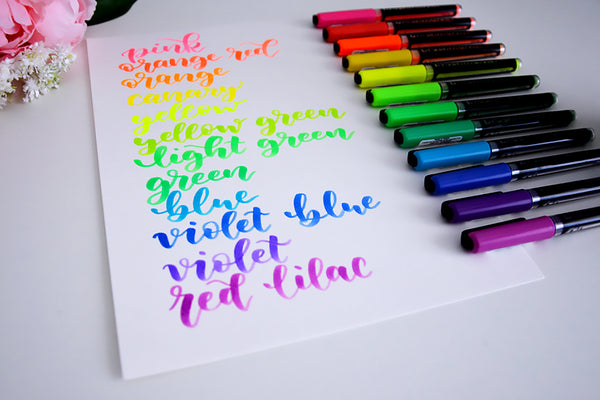 pink
orange red
orange
canary
yellow
yellow green
light green
green
blue
violet blue
violet
red lilac